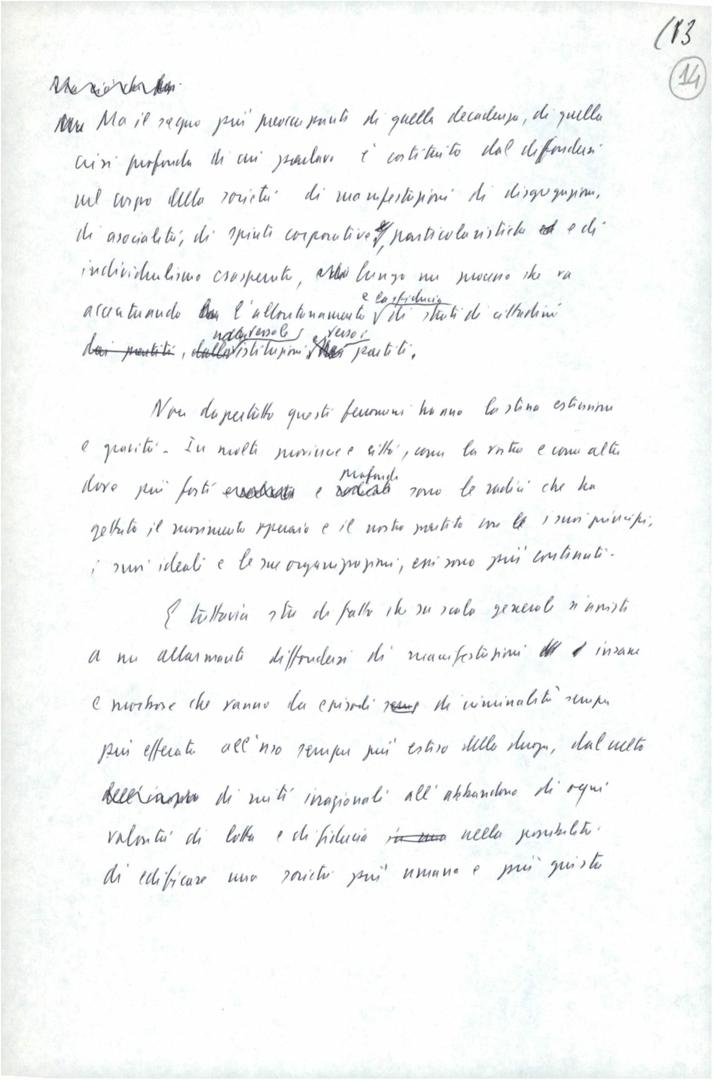 (13
14
Ma il segno più preoccupante di quella decadenza, di quella
crisi profonda di cui parlavo è costituito dal diffondersi
nel corpo della società di manifestazioni di disgregazione,
di asocialità, di spinte corporative, particolaristiche e di
individualismo esasperato, lungo un processo che va
accentuando l'allontanamento e la sfiducia di strati di cittadini
dai partiti, dalle verso le istituzioni e verso i partiti.
Non dapertutto questi fenomeni hanno la stessa estensione
e gravità. In molte province e città, come la vostra e come altre
dove più forti e profonde sono le radici che ha
gettato il movimento operaio e il nostro partito con i suoi principi,
i suoi ideali e le sue organizzazioni, essi sono più contenuti.
E tuttavia sta di fatto che su scala generale si assiste
a un allarmante diffondersi di manifestazioni insane
e morbose che vanno da episodi di criminalità sempre
più efferata all'uso sempre più esteso della droga, dal culto
di miti irrazionali all'abbandono di ogni
volontà di lotta e di fiducia nella possibilità
di edificare una società più umana e più giusta